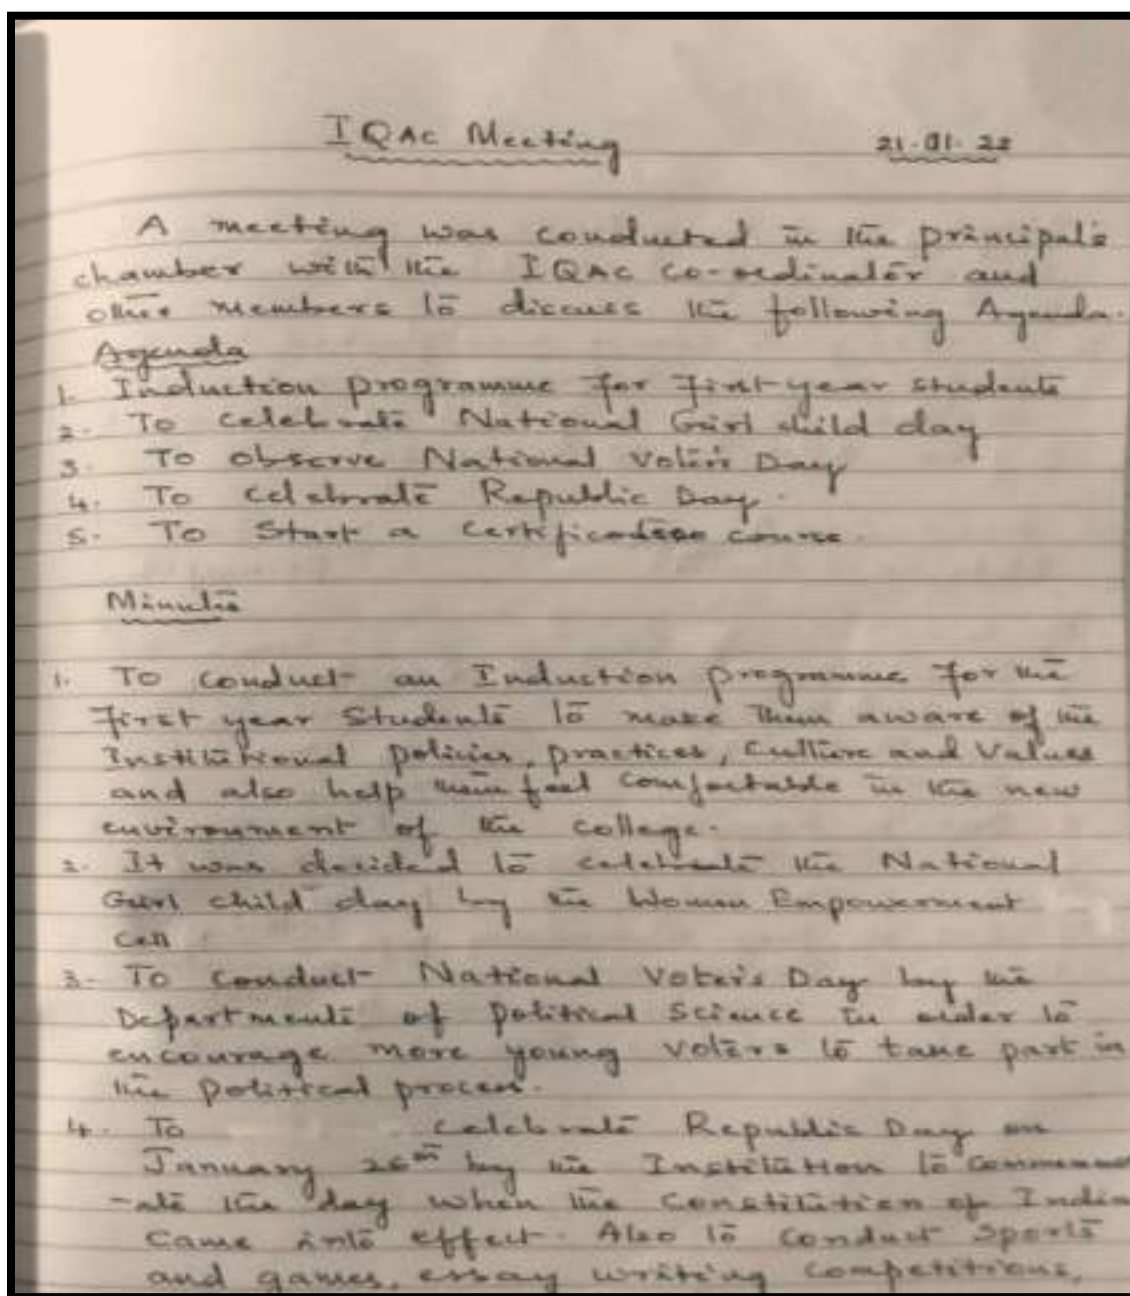 IQAC Meeting 21.01.22
A meeting was conducted in the principal's
chamber with the IQAC co-ordinator and
other members to discuss the following Agenda.
Agenda
1. Induction programme for first year students
2. To celebrate National Girl child day
3. To observe National Voter's Day
4. To celebrate Republic Day.
5. To Start a course.
Minutes
1. To conduct an Induction programme for the
first year Students to make them aware of the
Institutional policies, practices, Culture and Values
and also help them feel comfortable in the new
environment of the college.
2. It was decided to celebrate the National
Girl child day by the Women Empowerment
Cell
3. To conduct National Voter's Day by the
Departments of political Science in order to
encourage more young voters to take part in
the political process.
4. To celebrate Republic Day on
January 26th by the Institution to commemor
-ate the day when the Constitution of India
Came into effect. Also to conduct sports
and games, essay writing competitions,